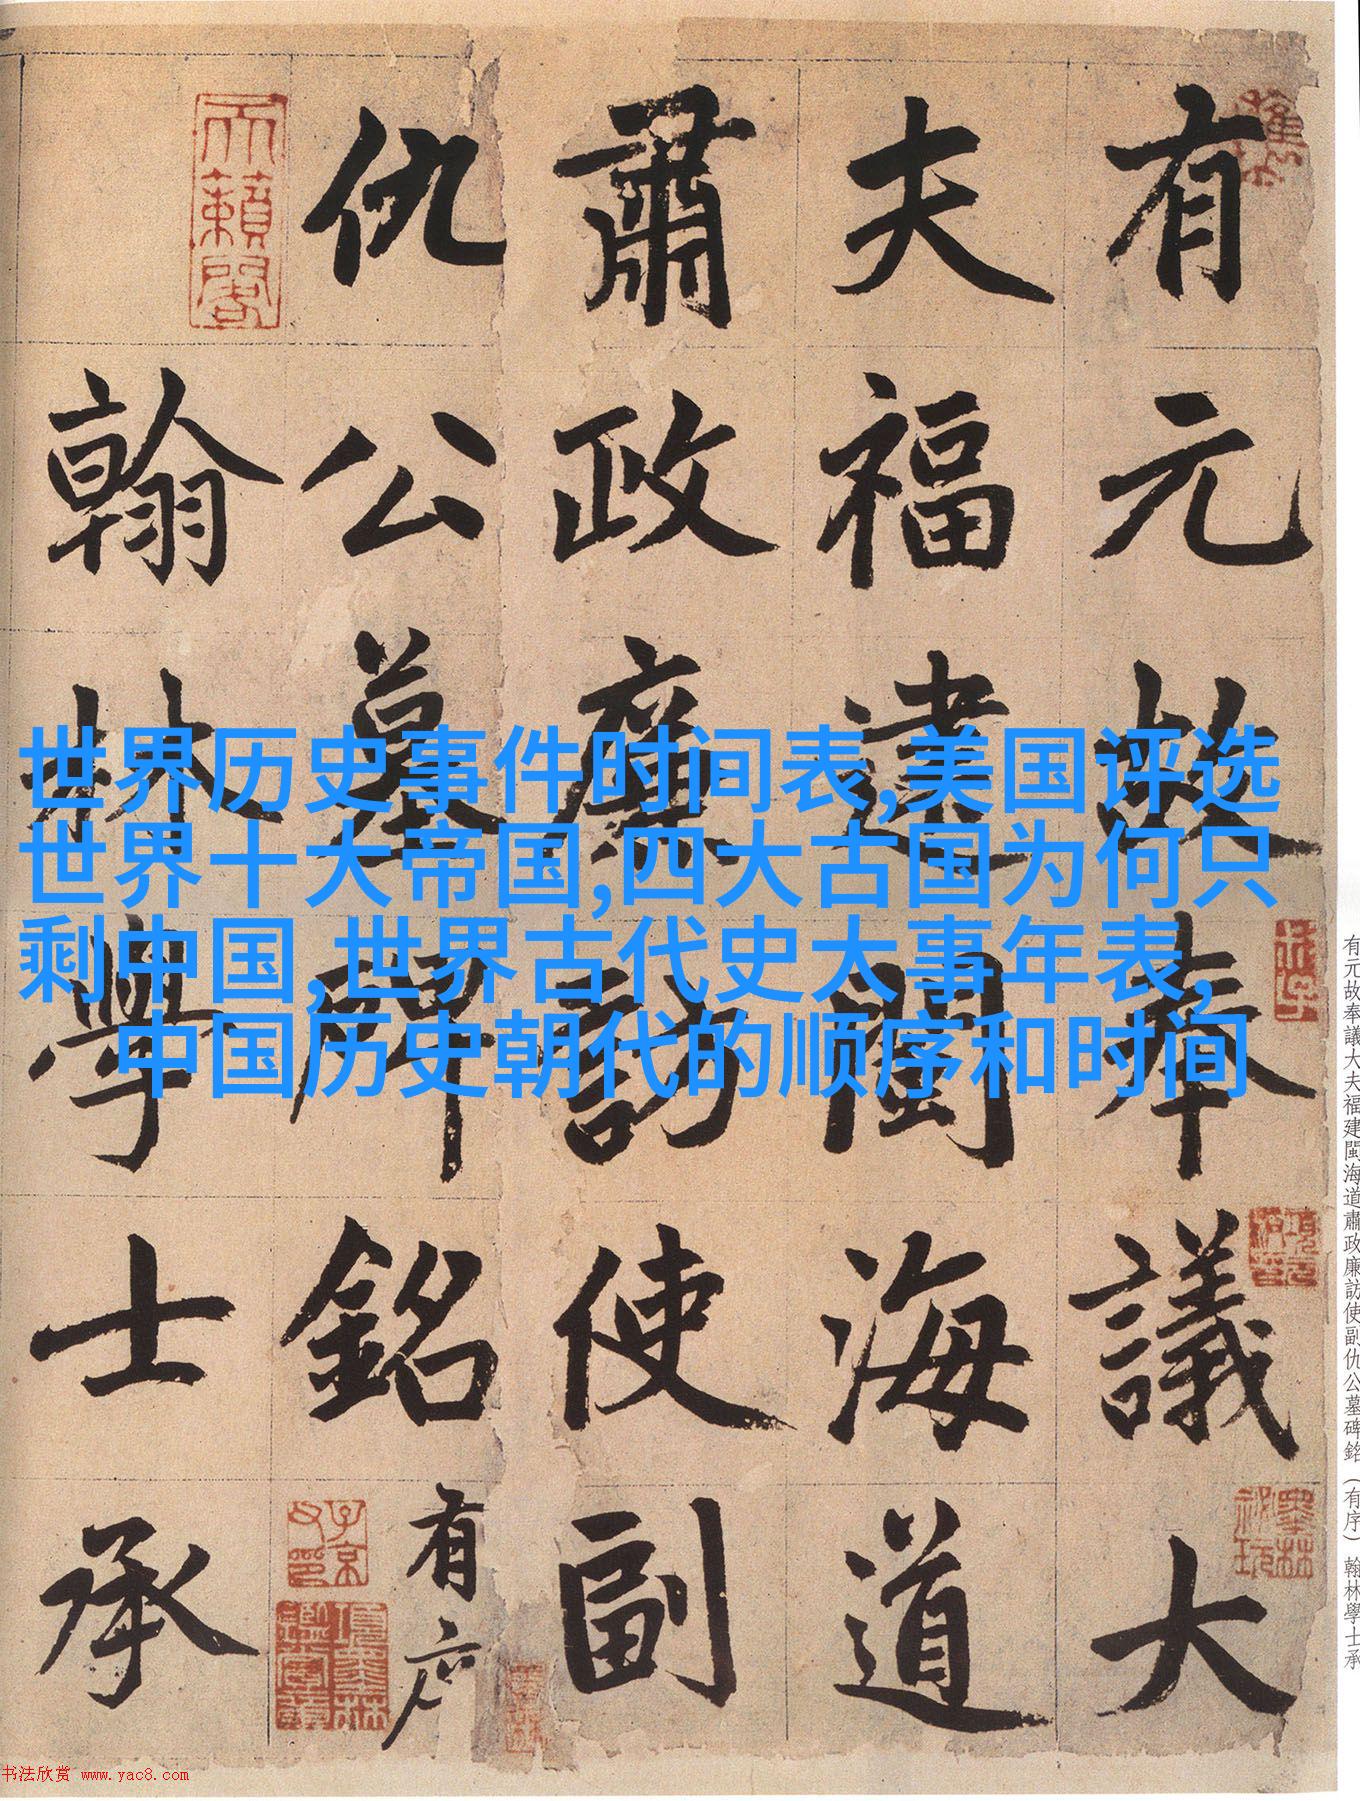 有元故奉議大
夫福建閩海道
肅政廉訪使副
仇公墓碑銘有序
翰林學士承
天籟閣
墨林祕玩
子京父印
項墨林鑑賞章
世界历史事件时间表,美国评选
世界十大帝国,四大古国为何只
剩中国,世界古代史大事年表,
中国历史朝代的顺序和时间
有元故奉議大夫福建閩海道肅政廉訪使副仇公墓碑銘（有序）翰林學士承
书法欣赏 www.yac8.com